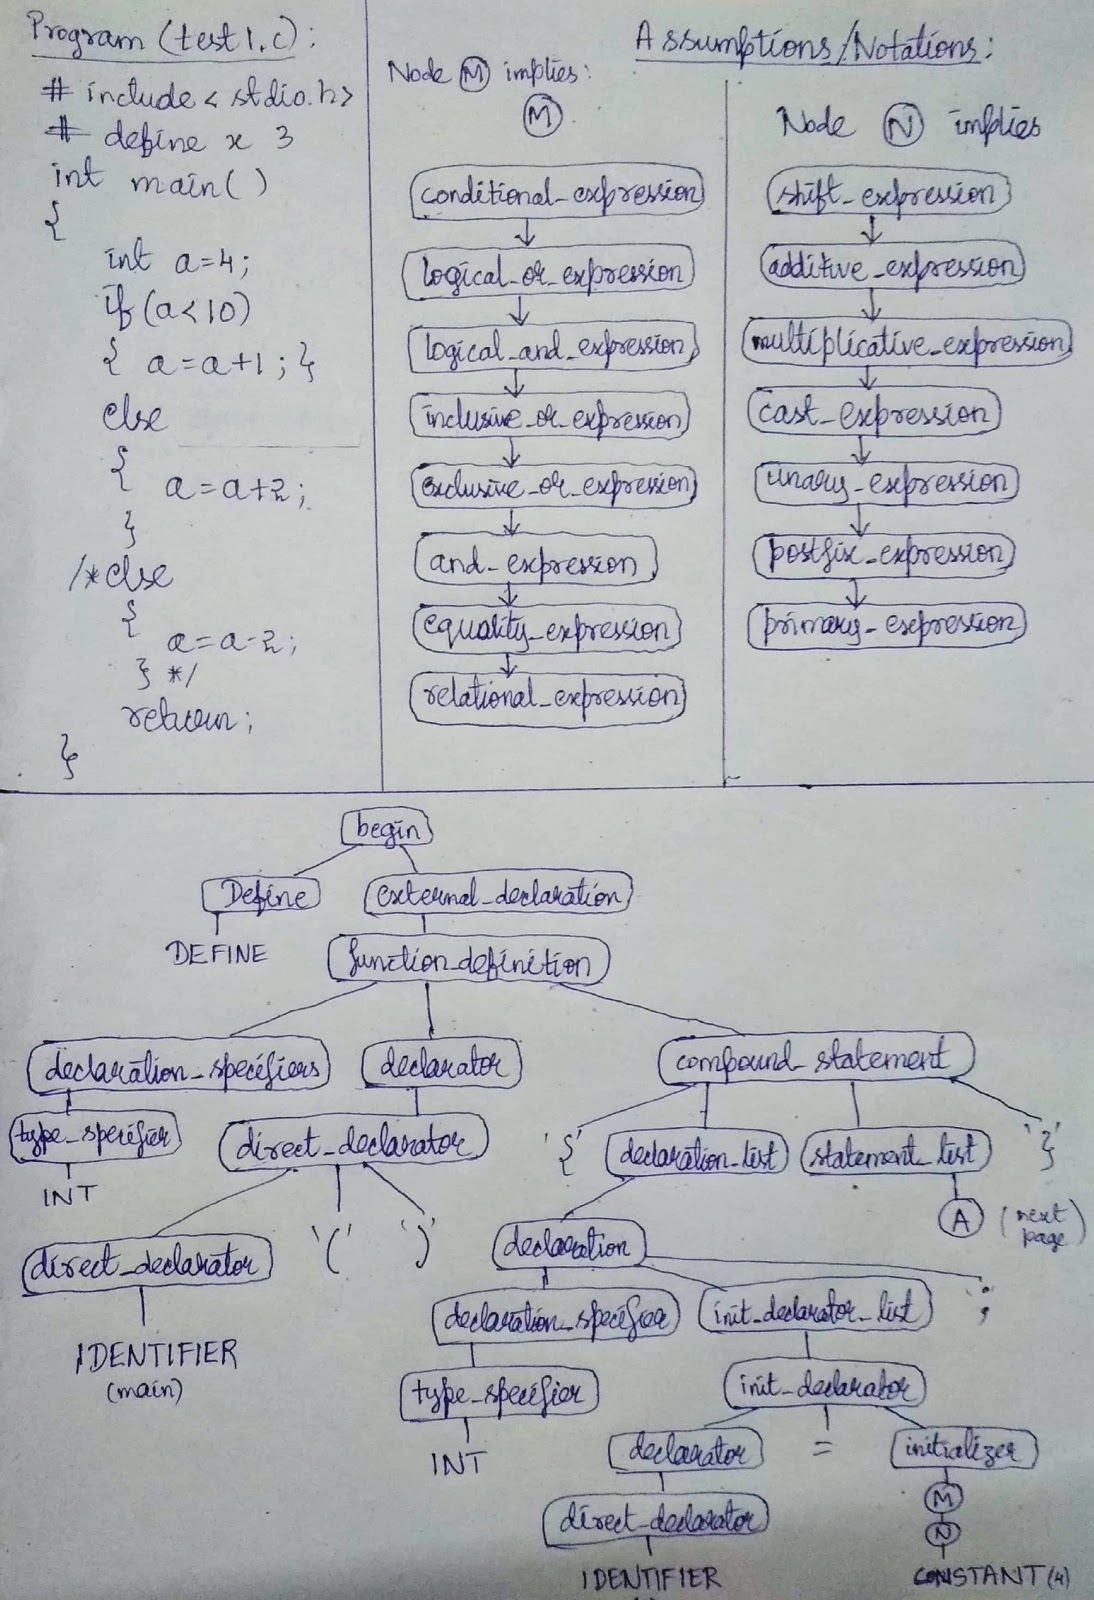 Program (test1.c):
# include < stdio.h>
# define x 3
int main( )
{
int a=4;
if (a<10)
{ a=a+1; }
else
{
a=a+2;
}
/*else
{
a=a-2;
} */
return;
}
Assumptions/Notations:
Node M implies:
M
conditional_expression
logical_or_expression
logical_and_expression
inclusive_or_expression
exclusive_or_expression
and_expression
equality_expression
relational_expression
Node N implies
shift_expression
additive_expression
multiplicative_expression
cast_expression
unary_expression
postfix_expression
primary_expression
begin
Define external_declaration
DEFINE function_definition
declaration_specifiers declarator compound_statement
type_specifier direct_declarator '{' declaration_list statement_list '}'
INT A (next page)
direct_declarator '(' ')' declaration
declaration_specifier init_declarator_list ';'
IDENTIFIER
(main)
type_specifier init_declarator
INT declarator = initializer
M
direct_declarator N
IDENTIFIER CONSTANT (4)